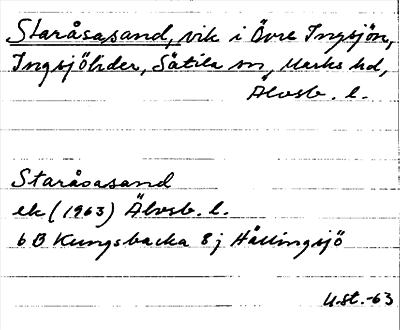 Staråsasand, vik i Övre Ingsjön,
Ingsjölider, Sätila sn, Marks hd,
Älvsb. l.
Staråsasand
ek (1963) Älvsb. l.
6 B Kungsbacka 8 j Hällingsjö
U.st.-63